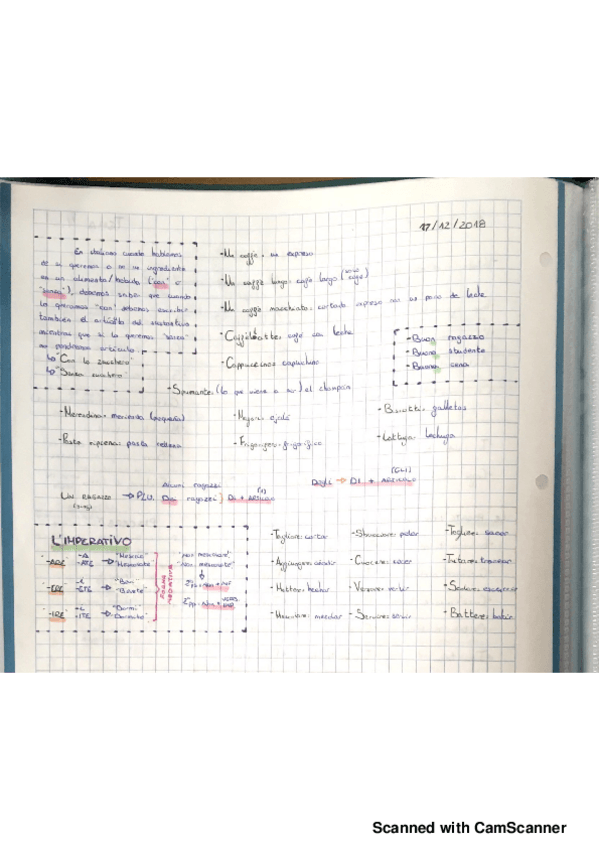 17/12/2018
En italiano cuando hablamos
de si queremos o no un ingrediente
en un alimento/bebida ("con" o
"senza"), debemos saber que cuando
lo queramos "con" debemos escribir
también el artículo del sustantivo
mientras que si lo queremos "senza"
no pondremos artículo.
"Con lo zucchero"
"Senza zucchero"
-Un caffè: un expreso
-Un caffè lungo: café largo
-Un caffè macchiato: cortado expreso con un poco de leche
-Caffèlatte: café con leche
-Cappuccino: capuchino
-Spumante: (lo que viene a ser) el champán
-Buon ragazzo
-Buono studente
-Buona cena
-Merendina: merienda (pequeña)
-Magari: ojalá
-Biscotti: galletas
-Pasta ripiena: pasta rellena
-Frigorifero: frigorífico
-Lattuga: lechuga
Alcuni ragazzi
Un ragazzo → PLU. Dei ragazzi } Di + Articolo (I)
Degli → Di + Articolo (GLI)
L'IMPERATIVO
-ARE -A -ATE → "Mescola" "Mescolate"
-ERE -I -ETE → "Bevi" "Bevete"
-IRE -I -ITE → "Dormi" "Dormite"
FORMA NEGATIVA
"Non mescolare"
"Non mescolate"
-Tagliare: cortar
-Sbucciare: pelar
-Aggiungere: añadir
-Cuocere: cocer
-Mettere: echar
-Versare: verter
-Mescolare: mezclar
-Servire: servir
-Togliere: sacar
-Tritare: triturar
-Scolare: escurrir
-Battere: batir
Scanned with CamScanner